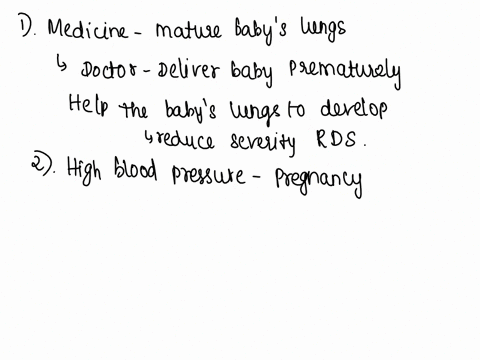 1). Medicine - mature baby's lungs
↳ Doctor - Deliver baby prematurely
Help the baby's lungs to develop
↳ reduce severity RDS.
2). High blood pressure - pregnancy